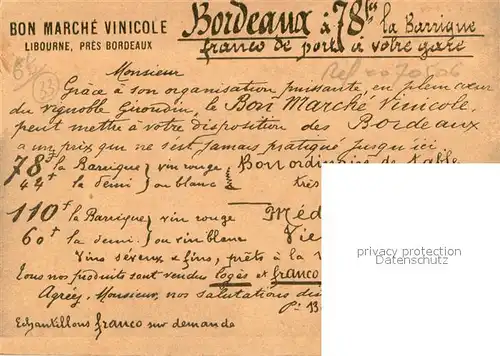 BON MARCHÉ VINICOLE
LIBOURNE, PRÈS BORDEAUX
Bordeaux à 78 frs la Barrique
franco de port à votre gare
Monsieur
Grâce à son organisation puissante, en plein cœur
du vignoble Girondin, le Bon Marché Vinicole,
peut mettre à votre disposition des Bordeaux
a un prix que ne s'est jamais pratiqué jusqu'ici.
78f la Barrique } vin rouge Bon ordinaire de Table
44f la demi } ou blanc Très
110f la Barrique } vin rouge Méd
60f la demi } ou vin blanc Vie
Vins séveux & fins, prêts à la
Tous nos produits sont vendus logés et franco
Agréez, Monsieur, nos salutations
Echantillons franco sur demande
privacy protection
Datenschutz